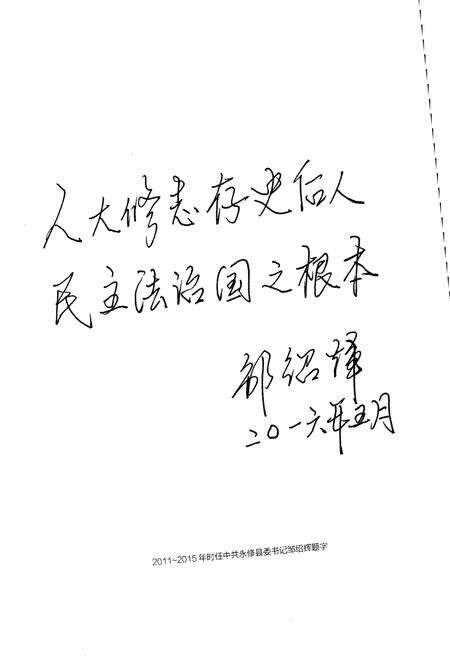 人大修志存史后人
民主法治国之根本
邹绍辉
二〇一六年五月
2011~2015年时任中共永修县委书记邹绍辉题字